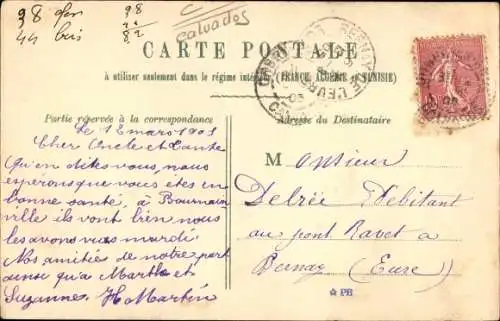 Calvados
CARTE POSTALE
à utiliser seulement dans le régime intérieur (FRANCE, ALGÉRIE et TUNISIE)
Partie réservée à la correspondance
Adresse du Destinataire
le 12 mars 1905
Cher Oncle et Tante
Qu'en dites vous, nous
espérons que vous êtes en
bonne santé, à Bournain
ville ils vont bien nous
les avons vus mardi.
Nos amitiés de notre part
ainsi qu'à Marthe et
Suzanne. H Martin
Monsieur
Delrée Débitant
au pont Ravet a
Bernay (Eure)